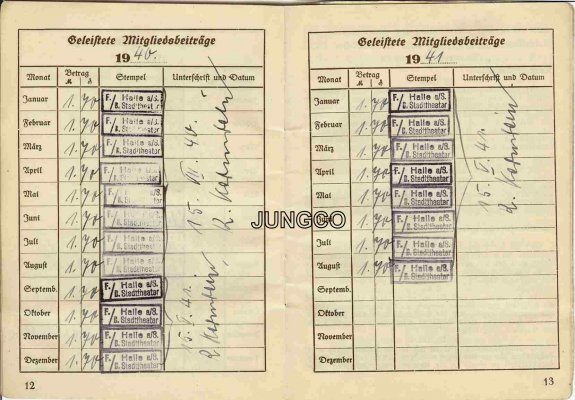 Geleistete Mitgliedsbeiträge
1940.
Monat Betrag Stempel Unterschrift und Datum
M ₰
Januar 1. 70 F./ Halle a/S. B. Stadttheater
Februar 1. 70 F./ Halle a/S. B. Stadttheater
März 1. 70 F./ Halle a/S. B. Stadttheater
April 1. 70 F./ Halle a/S. B. Stadttheater
Mai 1. 70 F./ Halle a/S. B. Stadttheater
Juni 1. 70 F./ Halle a/S. B. Stadttheater
Juli 1. 70 F./ Halle a/S. B. Stadttheater
August 1. 70 F./ Halle a/S. B. Stadttheater
15. VII. 40.
Septemb. 1. 70 F./ Halle a/S. B. Stadttheater
Oktober 1. 70 F./ Halle a/S. B. Stadttheater
November 1. 70 F./ Halle a/S. B. Stadttheater
Dezember 1. 70 F./ Halle a/S. B. Stadttheater
15. V. 41.
12
JUNGGO
Geleistete Mitgliedsbeiträge
1941
Monat Betrag Stempel Unterschrift und Datum
M ₰
Januar 1. 70 F./ Halle a/S. B. Stadttheater
Februar 1. 70 F./ Halle a/S. B. Stadttheater
März 1. 70 F./ Halle a/S. B. Stadttheater
April 1. 70 F./ Halle a/S. B. Stadttheater
Mai 1. 70 F./ Halle a/S. B. Stadttheater
Juni 1. 70 F./ Halle a/S. B. Stadttheater
Juli 1. 70 F./ Halle a/S. B. Stadttheater
August 1. 70 F./ Halle a/S. B. Stadttheater
15. V. 41.
Septemb.
Oktober
November
Dezember
13